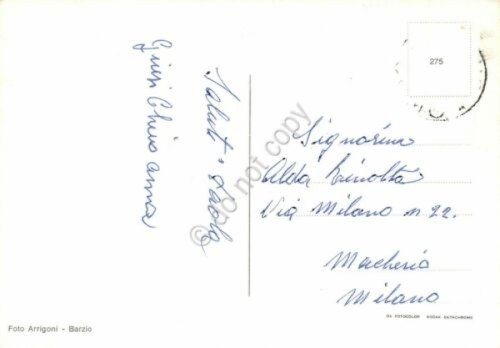 Saluti Paola
Giusi Chiara Anna
275
Signorina
Alda
Via Milano n 22.
Macherio
Milano
Foto Arrigoni - Barzio
DA FOTOCOLOR KODAK EKTACHROME
©do not copy